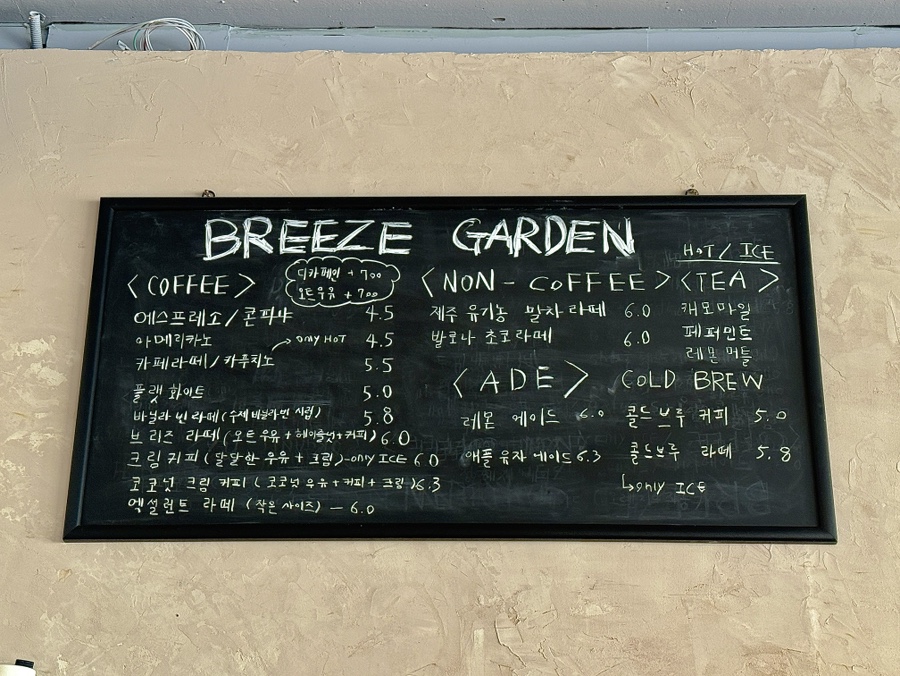 BREEZE GARDEN
<COFFEE>
디카페인 + 700
오트우유 + 700
에스프레소 / 콘파냐 4.5
아메리카노 4.5
카페라떼 / 카푸치노 → only HOT 5.5
플랫 화이트 5.0
바닐라 빈 라떼 (수제 바닐라빈 시럽) 5.8
브리즈 라떼 (오트 우유 + 헤이즐넛 + 커피) 6.0
크림커피 (달달한 우유 + 크림) - only ICE 6.0
코코넛 크림 커피 (코코넛 우유 + 커피 + 크림) 6.3
엑설런트 라떼 (작은 사이즈) - 6.0
<NON - COFFEE>
제주 유기농 말차 라떼 6.0
발로나 초코라떼 6.0
<ADE>
레몬 에이드 6.0
애플 유자 에이드 6.3
HOT / ICE
<TEA>
캐모마일
페퍼민트
레몬 머틀
COLD BREW
콜드브루 커피 5.0
콜드브루 라떼 5.8
↳ only ICE